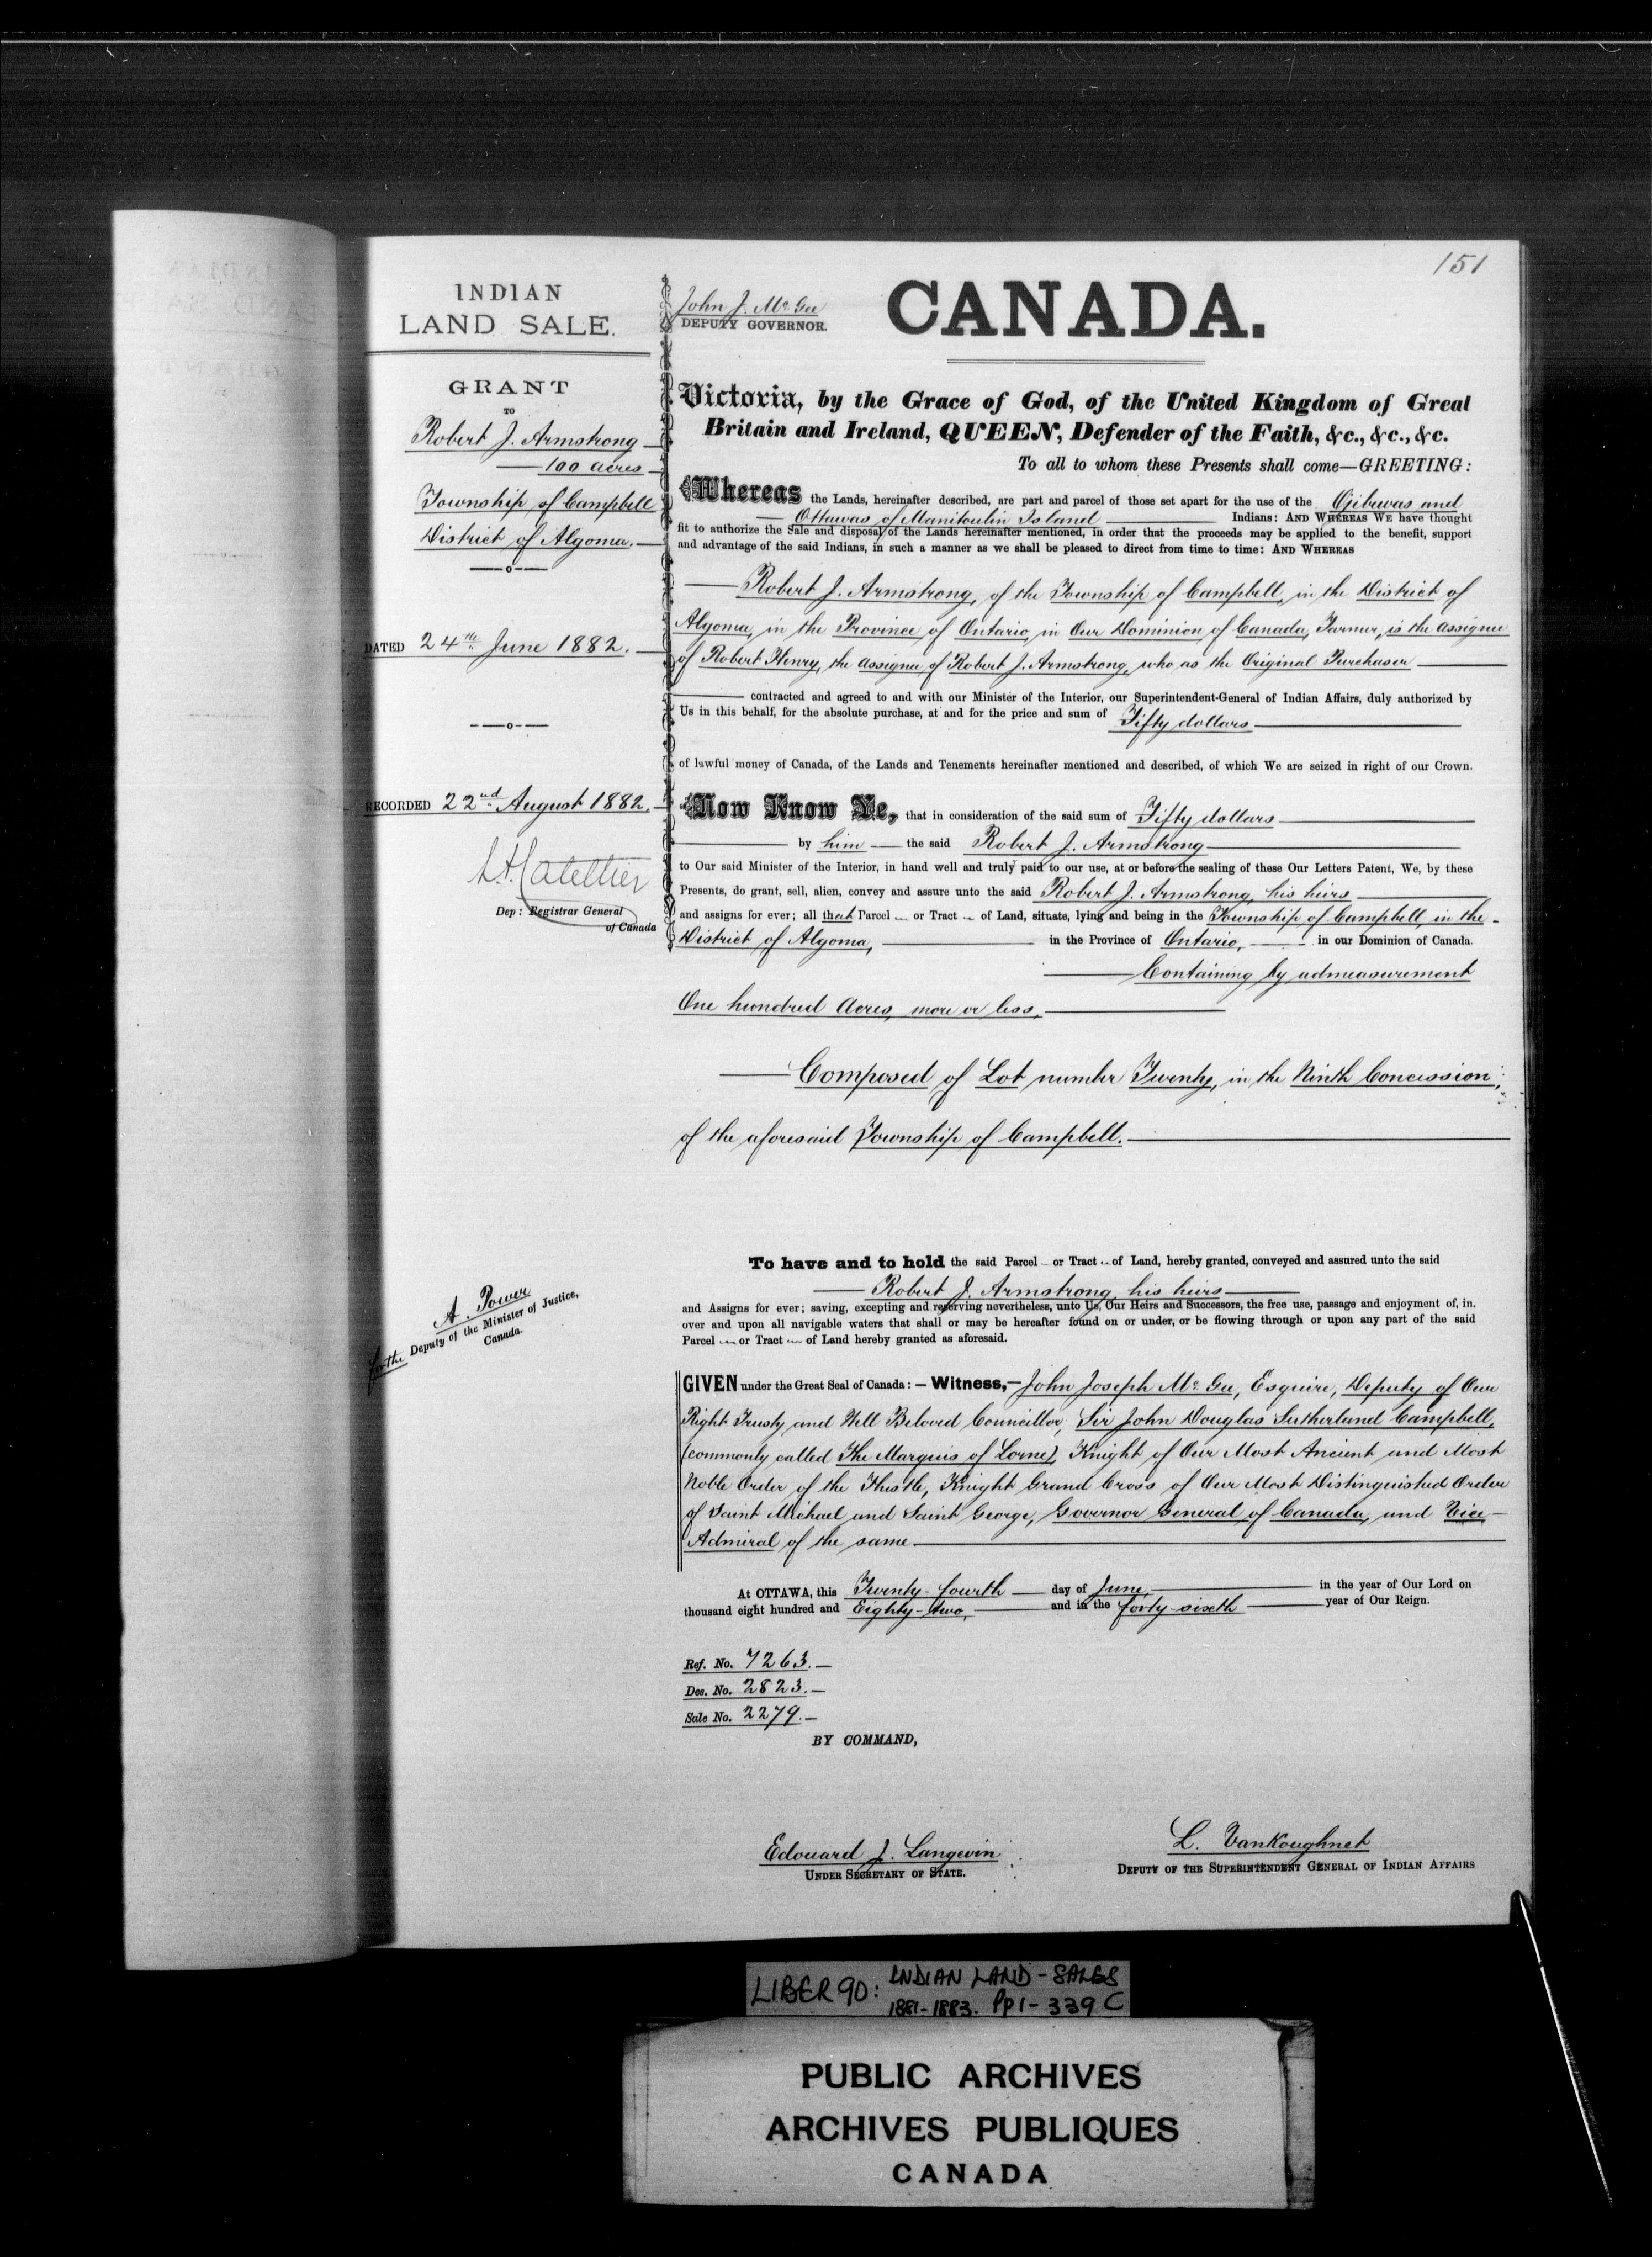 151
INDIAN
LAND SALE.
GRANT
TO
Robert J. Armstrong
100 acres
Township of Campbell
District of Algoma.
DATED 24th June 1882.
RECORDED 22nd August 1882.
Dep: Registrar General
of Canada
A. Power
for the Deputy of the Minister of Justice,
Canada.
John J. McGee
DEPUTY GOVERNOR.
CANADA.
Victoria, by the Grace of God, of the United Kingdom of Great
Britain and Ireland, QUEEN, Defender of the Faith, &c., &c., &c.
To all to whom these Presents shall come—GREETING:
Whereas the Lands, hereinafter described, are part and parcel of those set apart for the use of the Ojibewas and
Ottawas of Manitoulin Island Indians: AND WHEREAS WE have thought
fit to authorize the Sale and disposal of the Lands hereinafter mentioned, in order that the proceeds may be applied to the benefit, support
and advantage of the said Indians, in such a manner as we shall be pleased to direct from time to time: AND WHEREAS
Robert J. Armstrong, of the Township of Campbell, in the District of
Algoma, in the Province of Ontario, in Our Dominion of Canada, Farmer, is the assignee
of Robert Henry, the assignee of Robert J. Armstrong, who as the Original Purchaser
contracted and agreed to and with our Minister of the Interior, our Superintendent-General of Indian Affairs, duly authorized by
Us in this behalf, for the absolute purchase, at and for the price and sum of Fifty dollars
of lawful money of Canada, of the Lands and Tenements hereinafter mentioned and described, of which We are seized in right of our Crown.
Now Know Ye, that in consideration of the said sum of Fifty dollars
by him the said Robert J. Armstrong
to Our said Minister of the Interior, in hand well and truly paid to our use, at or before the sealing of these Our Letters Patent, We, by these
Presents, do grant, sell, alien, convey and assure unto the said Robert J. Armstrong, his heirs
and assigns for ever; all that Parcel or Tract of Land, situate, lying and being in the Township of Campbell, in the
District of Algoma, in the Province of Ontario, in our Dominion of Canada.
Containing by admeasurement
One hundred Acres, more or less,
Composed of Lot number Twenty, in the Ninth Concession,
of the aforesaid Township of Campbell.
To have and to hold the said Parcel or Tract of Land, hereby granted, conveyed and assured unto the said
Robert J. Armstrong his heirs
and Assigns for ever; saving, excepting and reserving nevertheless, unto Us, Our Heirs and Successors, the free use, passage and enjoyment of, in,
over and upon all navigable waters that shall or may be hereafter found on or under, or be flowing through or upon any part of the said
Parcel or Tract of Land hereby granted as aforesaid.
GIVEN under the Great Seal of Canada: — Witness,— John Joseph McGee, Esquire, Deputy of Our
Right Trusty and Well Beloved Councillor, Sir John Douglas Sutherland Campbell,
(commonly called The Marquis of Lorne), Knight of Our Most Ancient and Most
Noble Order of the Thistle, Knight Grand Cross of Our Most Distinguished Order
of Saint Michael and Saint George, Governor General of Canada, and Vice-
Admiral of the same
At OTTAWA, this Twenty-fourth day of June, in the year of Our Lord on
thousand eight hundred and Eighty-two, and in the forty-sixth year of Our Reign.
Ref. No. 7263.
Des. No. 2823.
Sale No. 2279.
BY COMMAND,
Edouard J. Langevin
UNDER SECRETARY OF STATE.
L. VanKoughnet
DEPUTY OF THE SUPERINTENDENT GENERAL OF INDIAN AFFAIRS
LIBER 90: INDIAN LAND-SALES
1881-1883. Pp 1-339 C
PUBLIC ARCHIVES
ARCHIVES PUBLIQUES
CANADA